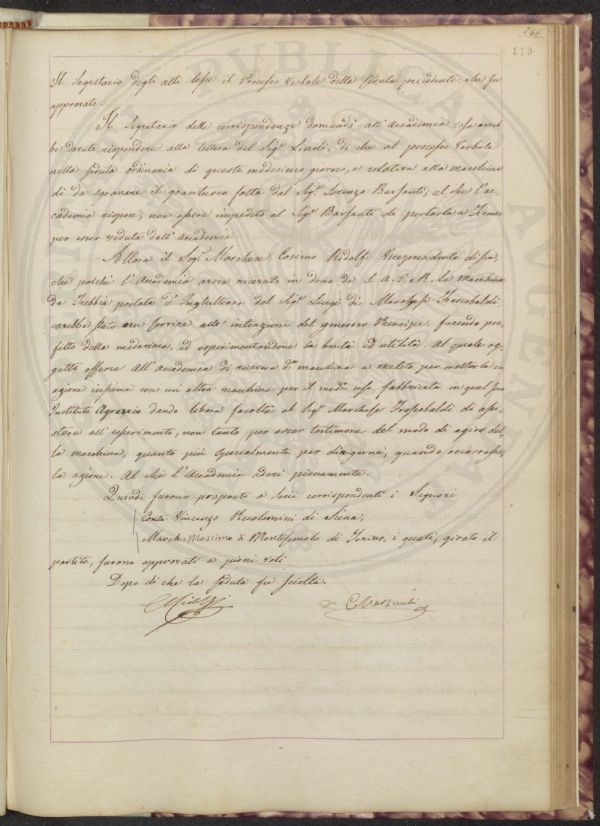 246
119
Il Segretario degli atti lesse il Processo Verbale della seduta precedente che fu
approvato.
Il Segretario delle corrispondenze domandò all'Accademia cosa avreb
be dovuto rispondere alla lettera del Sigr. di che al processo verbale
nella seduta ordinaria di questo medesimo giorno, e relativa alla macchina
di da sgranare il granturco fatta dal Sigr. Lorenzo Barsanti; al che l'Ac
cademia rispose, non essere impedito al Sigr. Barsanti di portarla a Firenze
per esser veduta dall'Accademia.
Allora il Sigr. Marchese Cosimo Ridolfi Vicepresidente disse,
che poichè l'Accademia aveva ricevuta in dono da S. A. I. R. la macchina
da Trebbia portata d'Inghilterra dal Sigr. Luigi di March. Frescobaldi
sarebbe stato ben servire alle intenzioni del generoso Principe, facendo pro
fitto della medesima, ed esperimentandone la bontà ed utilità. Al quale og
getto offerse all'Accademia di ricevere da. macchina a Meleto per metterla in
azione insieme con un altra macchina per il medo. uso fabbricata in quel suo
Instituto Agrario dando libera facoltà al Sigr. Marchese Frescobaldi di assi
stere all'esperimento, non tanto per esser testimone del modo di agire del
la macchina, quanto più specialmente per dirigerne, quando occorresse,
la azione. Al che l'Accademia aderì pienamente.
Quindi furono proposti a Socii corrispondenti i Signori
Conte Vincenzo Piccolomini di Siena;
March. Massimo di Montezemolo di Torino, i quali, girato il
partito, furono approvati a pieni voti.
Dopo di che la seduta fu sciolta.
PUBLICA